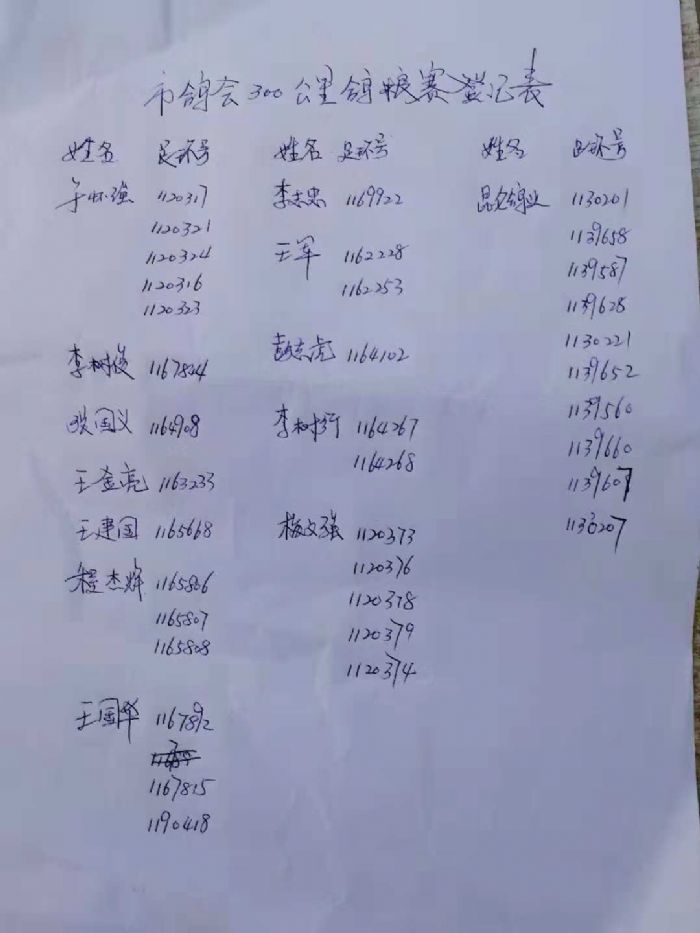 市鸽会300公里鸽粮赛登记表
姓名 足环号
于怀强 1120317
1120321
1120324
1120316
1120323
李树俊 1167844
国义 1164908
王金亮 1163233
王建国 1165668
程杰烽 1165806
1165807
1165808
王国华 1167892
1167815
1190418
姓名 足环号
李志忠 1169922
王军 1162228
1162253
彭志虎 1164102
李树行 1164267
1164268
杨文强 1120373
1120376
1120378
1120379
1120374
姓名 足环号
昆仑鸽业 1130201
1139658
1139587
1139628
1130221
1139652
1139560
1139660
1139607
1130207